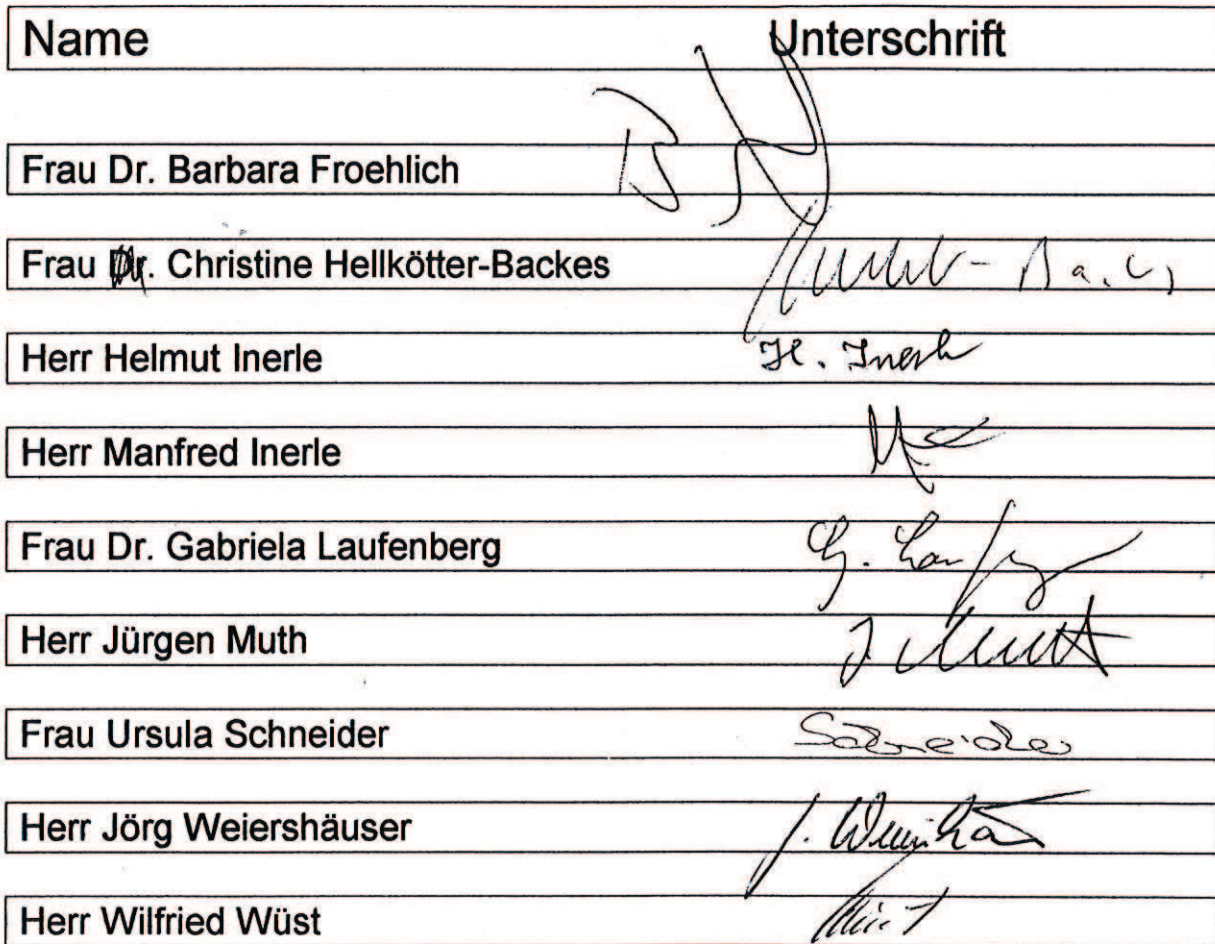 Name Unterschrift
Frau Dr. Barbara Froehlich
Frau Dr. Christine Hellkötter-Backes
Herr Helmut Inerle H. Inerle
Herr Manfred Inerle
Frau Dr. Gabriela Laufenberg
Herr Jürgen Muth J Muth
Frau Ursula Schneider Schneider
Herr Jörg Weiershäuser
Herr Wilfried Wüst